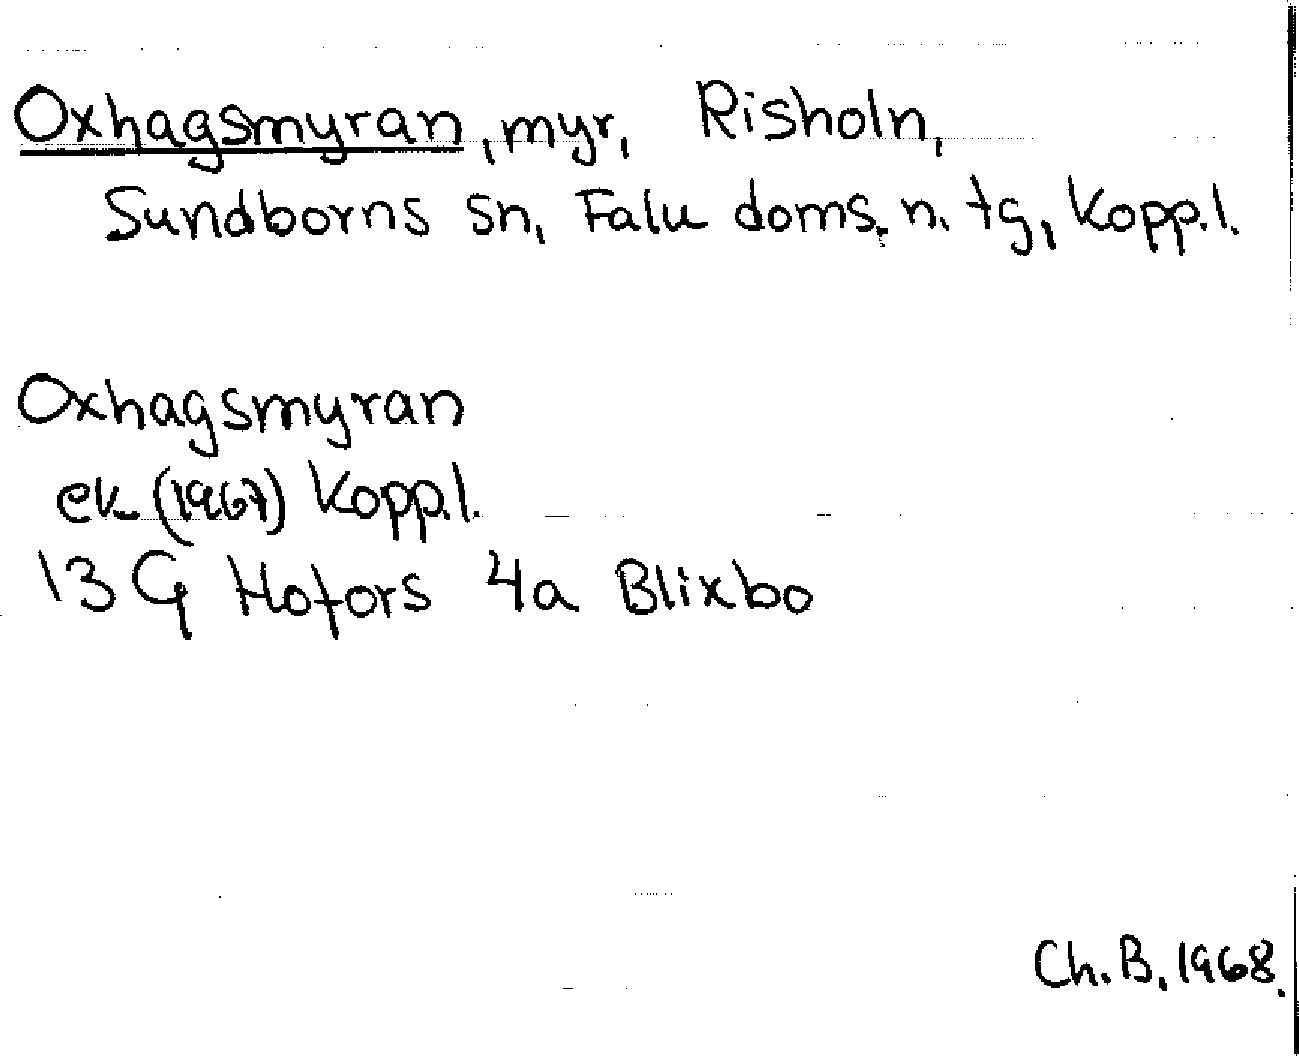 Oxhagsmyran, myr, Risholn,
Sundborns sn, Falu doms. n. tg, Kopp.l.
Oxhagsmyran
ek (1967) Kopp.l.
13 G Hofors 4a Blixbo
Ch. B. 1968.